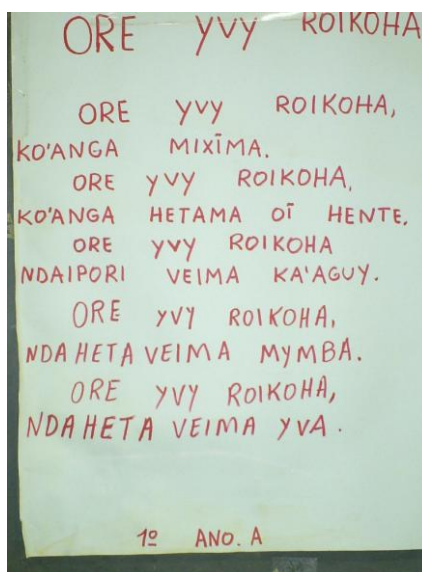 ORE YVY ROIKOHA
ORE YVY ROIKOHA,
KO'ANGA MIXĪMA.
ORE YVY ROIKOHA,
KO'ANGA HETAMA OĪ HENTE.
ORE YVY ROIKOHA
NDAIPORI VEIMA KA'AGUY.
ORE YVY ROIKOHA,
NDAHETA VEIMA MYMBA.
ORE YVY ROIKOHA,
NDAHETA VEIMA YVA.
1º ANO. A